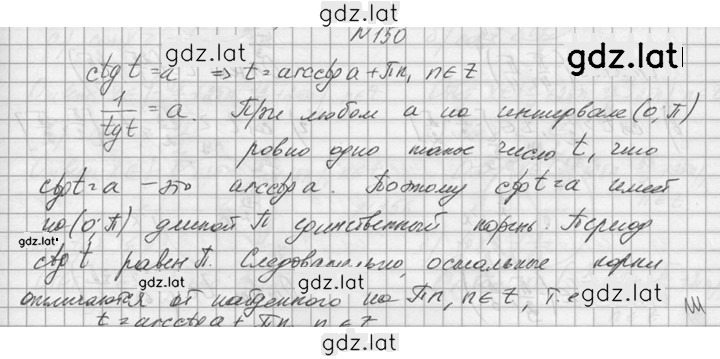 gdz.lat
№150
gdz.lat
gdz.lat
ctg t = a ⇒ t = arcctg a + Пn, n ∈ Z
1/tgt = a. При любом a на интервале (0; П)
ровно одно такое число t, что
ctgt = a - это arcctg a. Поэтому ctgt = a имеет
на (0; П) длиной П единственный корень. Период
gdz.lat
ctg t равен П. Следовательно, остальные корни
отличаются от найденного на Пn, n ∈ Z, т.е
gdz.lat
t = arcctg a + Пn, n ∈ Z
gdz.lat